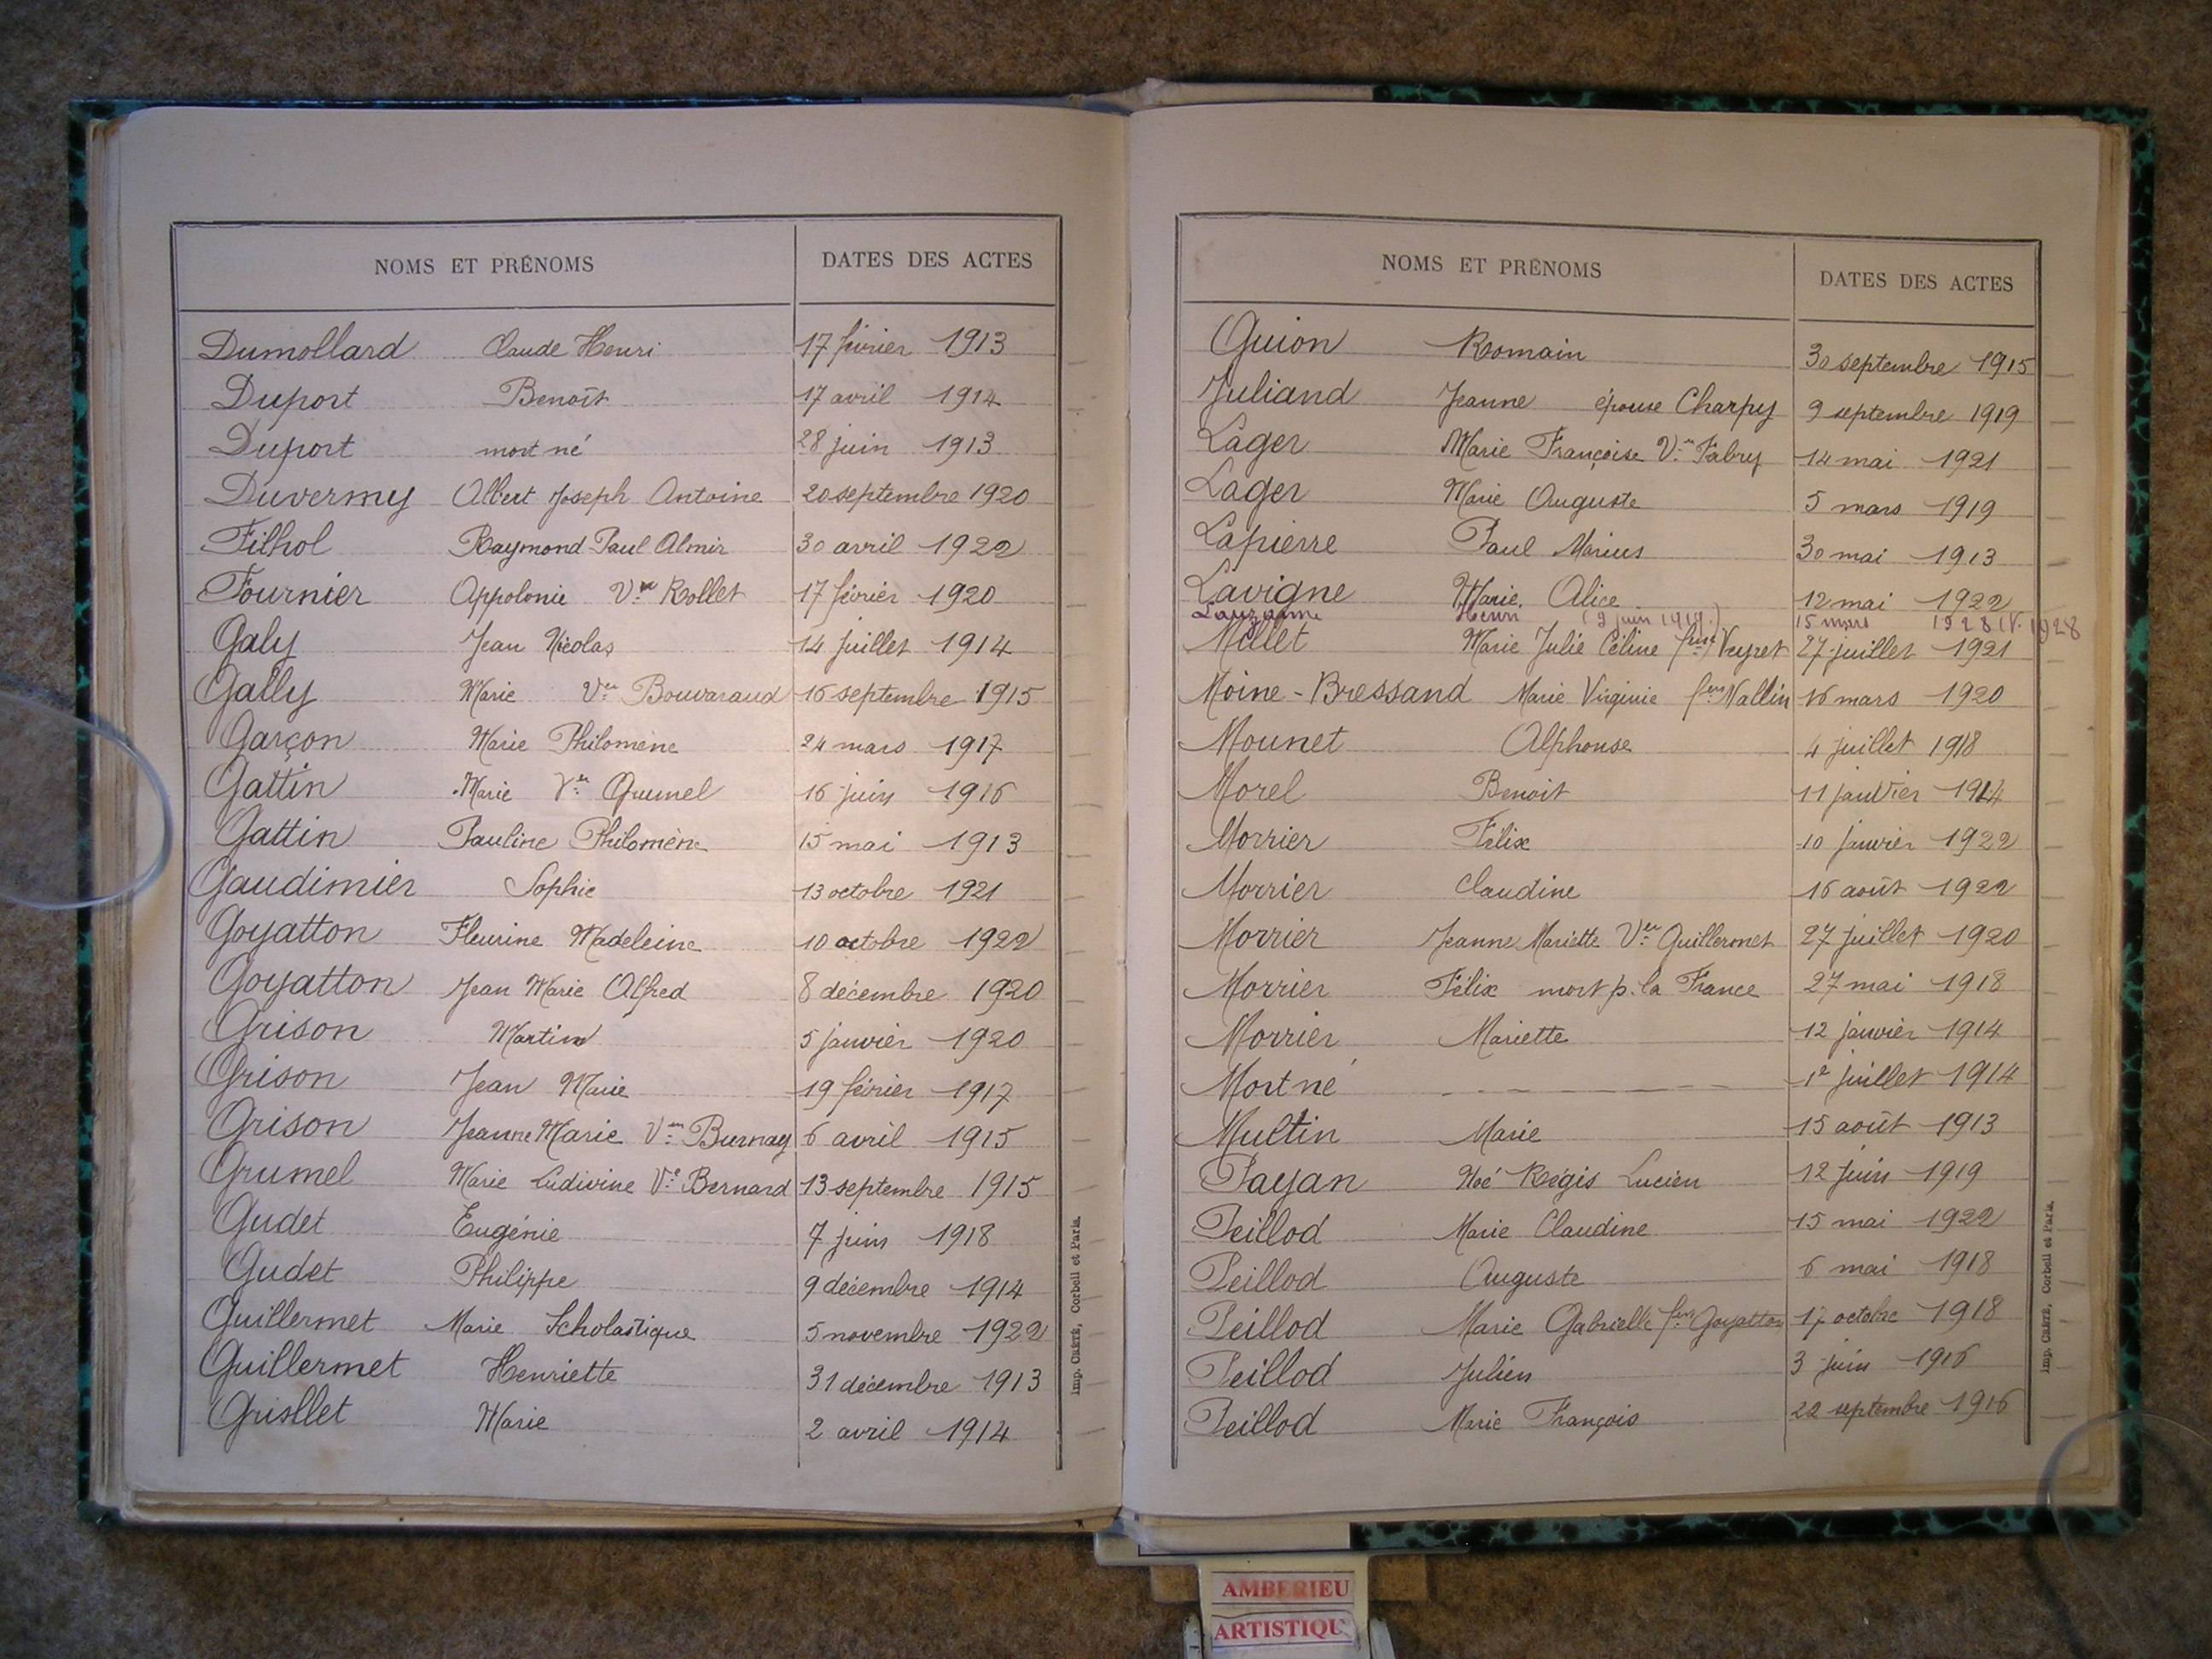 NOMS ET PRÉNOMS DATES DES ACTES
Dumollard Claude Henri 17 février 1913
Duport Benoît 17 avril 1914
Duport mort né 28 juin 1913
Duvermy Albert Joseph Antoine 20 septembre 1920
Filhol Raymond Paul Almir 30 avril 1922
Fournier Appolonie Vve Rollet 17 février 1920
Galy Jean Nicolas 14 juillet 1914
Gally Marie Vve Bouvaraud 16 septembre 1915
Garçon Marie Philomène 24 mars 1917
Gattin Marie Vve Grumel 16 juin 1916
Gattin Pauline Philomène 15 mai 1913
Gaudimier Sophie 13 octobre 1921
Goyatton Fleurine Madeleine 10 octobre 1922
Goyatton Jean Marie Alfred 8 décembre 1920
Grison Martin 5 janvier 1920
Grison Jean Marie 19 février 1917
Grison Jeanne Marie Vve Burnay 6 avril 1915
Grumel Marie Ludivine Ve Bernard 13 septembre 1915
Gudet Eugénie 7 juin 1918
Gudet Philippe 9 décembre 1914
Guillermet Marie Scholastique 5 novembre 1922
Guillermet Henriette 31 décembre 1913
Grisllet Marie 2 avril 1914
Imp. CRÉTÉ, Corbeil et Paris.
NOMS ET PRÉNOMS DATES DES ACTES
Guion Romain 30 septembre 1915
Juliand Jeanne épouse Charpy 9 septembre 1919
Lager Marie Françoise Vve Fabry 14 mai 1921
Lager Marie Auguste 5 mars 1919
Lapierre Paul Marius 30 mai 1913
Lavigne Marie Alice 12 mai 1922
Lauzanne Henri (9 juin 1919) 15 mars 1928
Millet Marie Julie Céline fme Veyret 27 juillet 1921
Moine-Bressand Marie Virginie fme Nallin 16 mars 1920
Mounet Alphonse 4 juillet 1918
Morel Benoit 11 janvier 1914
Morrier Félix 10 janvier 1922
Morrier Claudine 16 août 1922
Morrier Jeanne Mariette Vve Guillermet 27 juillet 1920
Morrier Félix mort p. la France 27 mai 1918
Morrier Mariette 12 janvier 1914
Mort né 1er juillet 1914
Multin Marie 15 août 1913
Payan Noé Régis Lucien 12 juin 1919
Peillod Marie Claudine 15 mai 1922
Peillod Auguste 6 mai 1918
Peillod Marie Gabrielle fme Goyatton 17 octobre 1918
Peillod Julien 3 juin 1916
Peillod Marie François 22 septembre 1916
Imp. CRÉTÉ, Corbeil et Paris.
AMBERIEU
ARTISTIQU